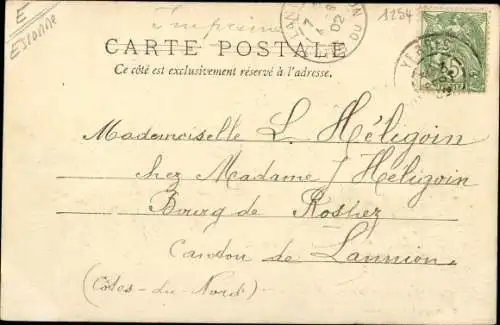 E
Essonne
Imprimé
1254
LANNION
7
02
CARTE POSTALE
Ce côté est exclusivement réservé à l'adresse.
Mademoiselle L. Héligoin
chez Madame Héligoin
Bourg de Rospez
Canton de Lannion
(Côtes-du-Nord)